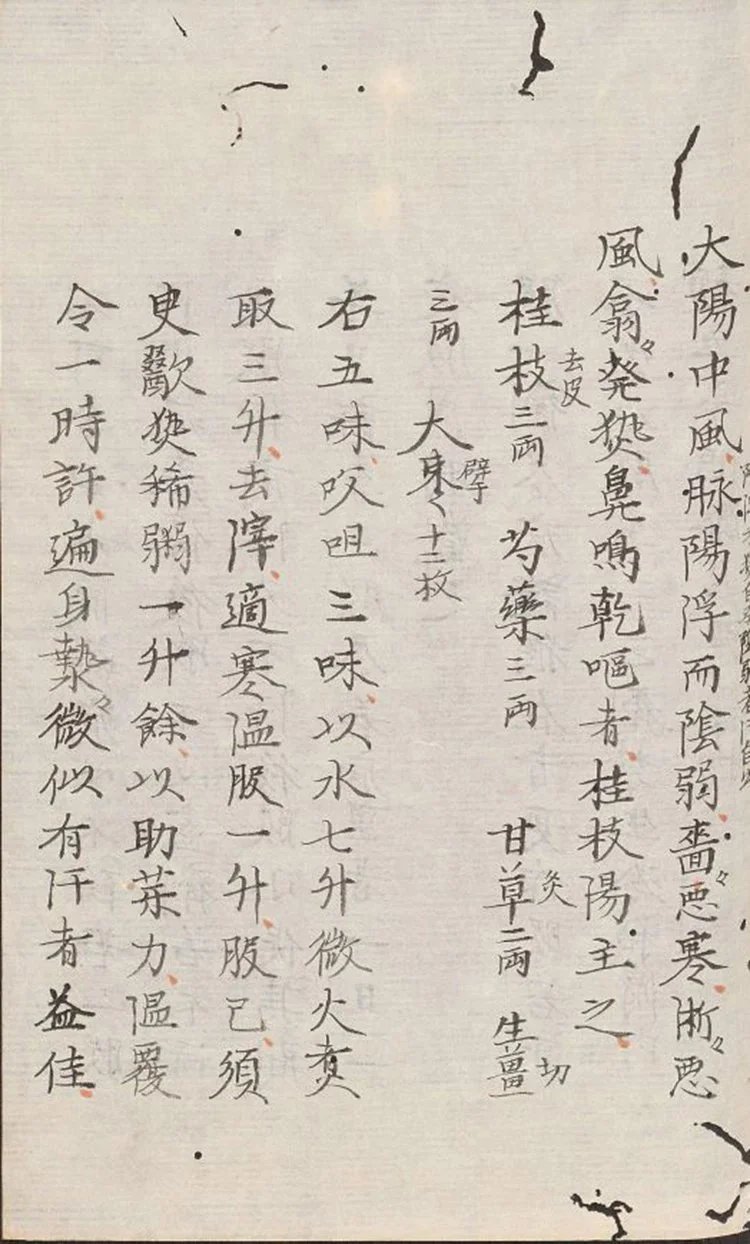 大陽中風脉陽浮而陰弱嗇々悪寒淅々悪
風翕々発𤍠鼻鳴乾嘔者桂枝陽主之
桂枝三两去皮 芍藥三两 甘草二两炙 生薑切
三两 大棗十二枚擘
右五味㕮咀三味以水七升微火煑
取三升去滓適寒温服一升服已須
㬰歠𤍠稀粥一升餘以助薬力温覆
令一時許遍身漐々微似有汗者益佳